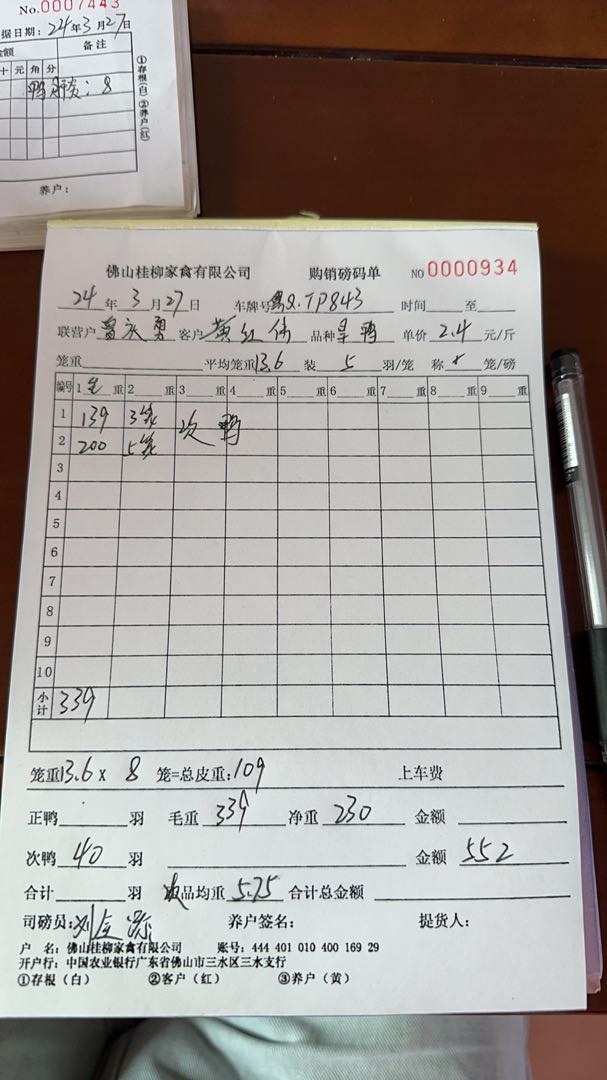 No.0007443
据日期：24年3月27日
金额 备注
十 元 角 分
①存根（白）②养户（红）
养户：
佛山桂柳家禽有限公司 购销磅码单 NO 0000934
24 年 3 月 27 日 车牌号 Q.TP843 时间 至
联营户 客户 黄红伟 品种 旱鸭 单价 2.4 元/斤
笼重 平均笼重 13.6 装 5 羽/笼 称 笼/磅
编号 1 重 2 重 3 重 4 重 5 重 6 重 7 重 8 重 9 重
1 139 3笼 次鸭
2 200 5笼
3
4
5
6
7
8
9
10
小计 339
笼重 13.6 × 8 笼=总皮重：109 上车费
正鸭 羽 毛重 339 净重 230 金额
次鸭 40 羽 金额 552
合计 羽 品均重 5.75 合计总金额
司磅员： 养户签名： 提货人：
户 名：佛山桂柳家禽有限公司 账号：444 401 010 400 169 29
开户行：中国农业银行广东省佛山市三水区三水支行
①存根（白） ②客户（红） ③养户（黄）